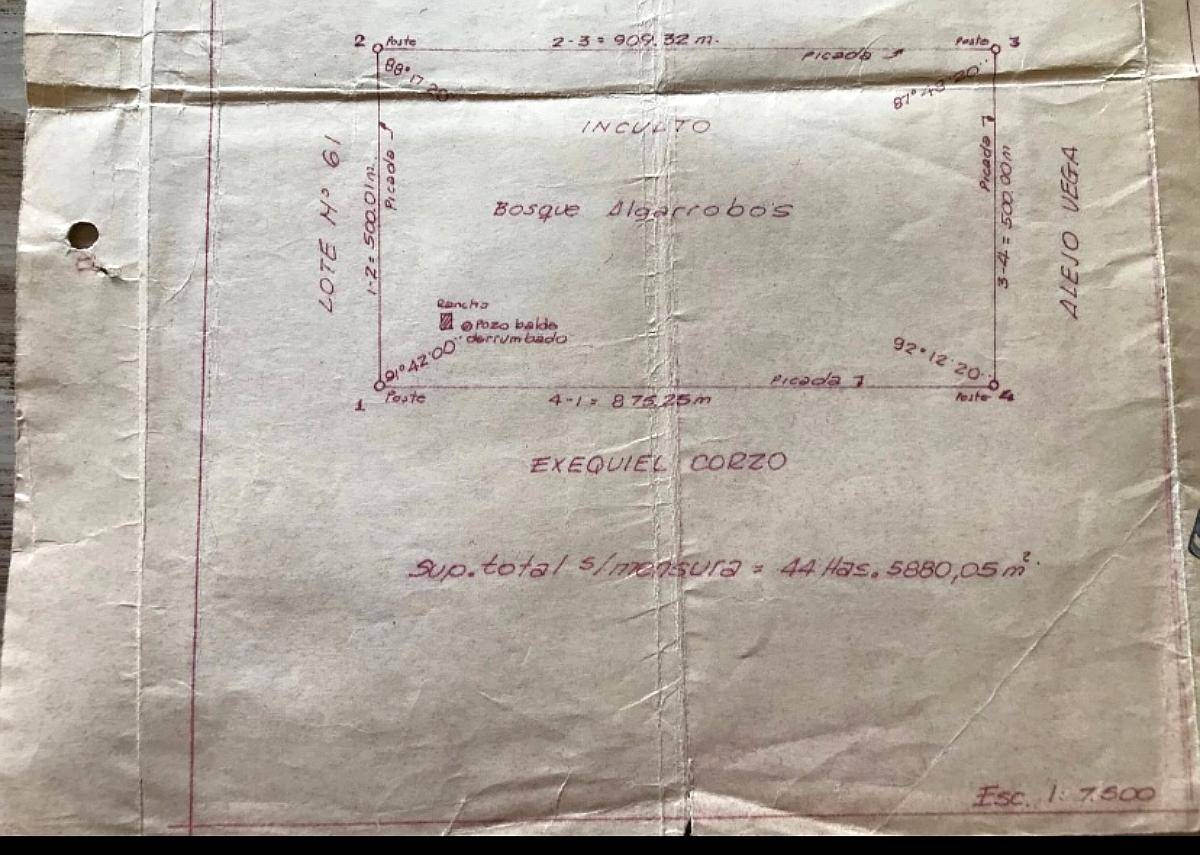 2 Poste 2-3 = 909.32 m. Picada Poste 3
88°17'20" 87°43'20"
INCULTO
LOTE Nº 61
1-2 = 500.01m.
Picada
Bosque Algarrobos
Picada
3-4 = 500.00m
ALEJO VEGA
Rancho
Pozo balde
derrumbado
91°42'00" 92°12'20"
1 Poste 4-1 = 875,25m Picada Poste 4
EXEQUIEL CORZO
Sup. total s/mensura = 44 Has. 5880,05 m².
Esc. 1: 7.500